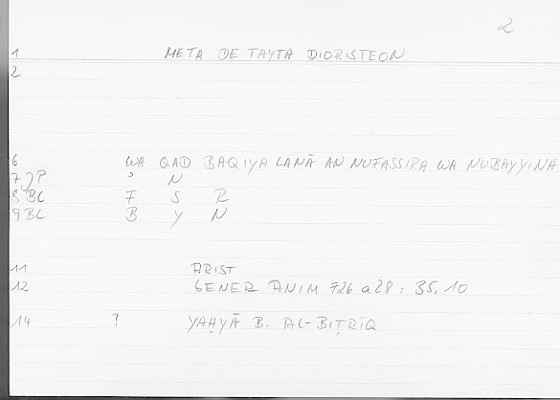 2
1 META DE TAYTA DIORISTEON
2
6 WA QAD BAQIYA LANĀ AN NUFASSIRA WA NUBAYYINA
7 JP ʾ N
8 BC F S R
9 BC B Y N
11 ARIST
12 GENER ANIM 726 a28 : 35,10
14 ? YAḤYĀ B. AL-BIṬRĪQ